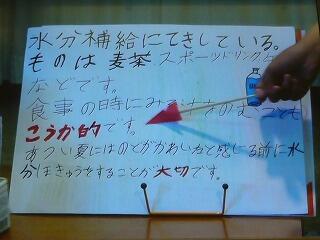 水分補給にてきしている。
ものは麦茶スポーツドリンク
などです。
食事の時にみそ汁をのむことも
こうか的です。
あつい夏にはのどがかわいたと感じる前に水
分ほきゅうをすることが大切です。